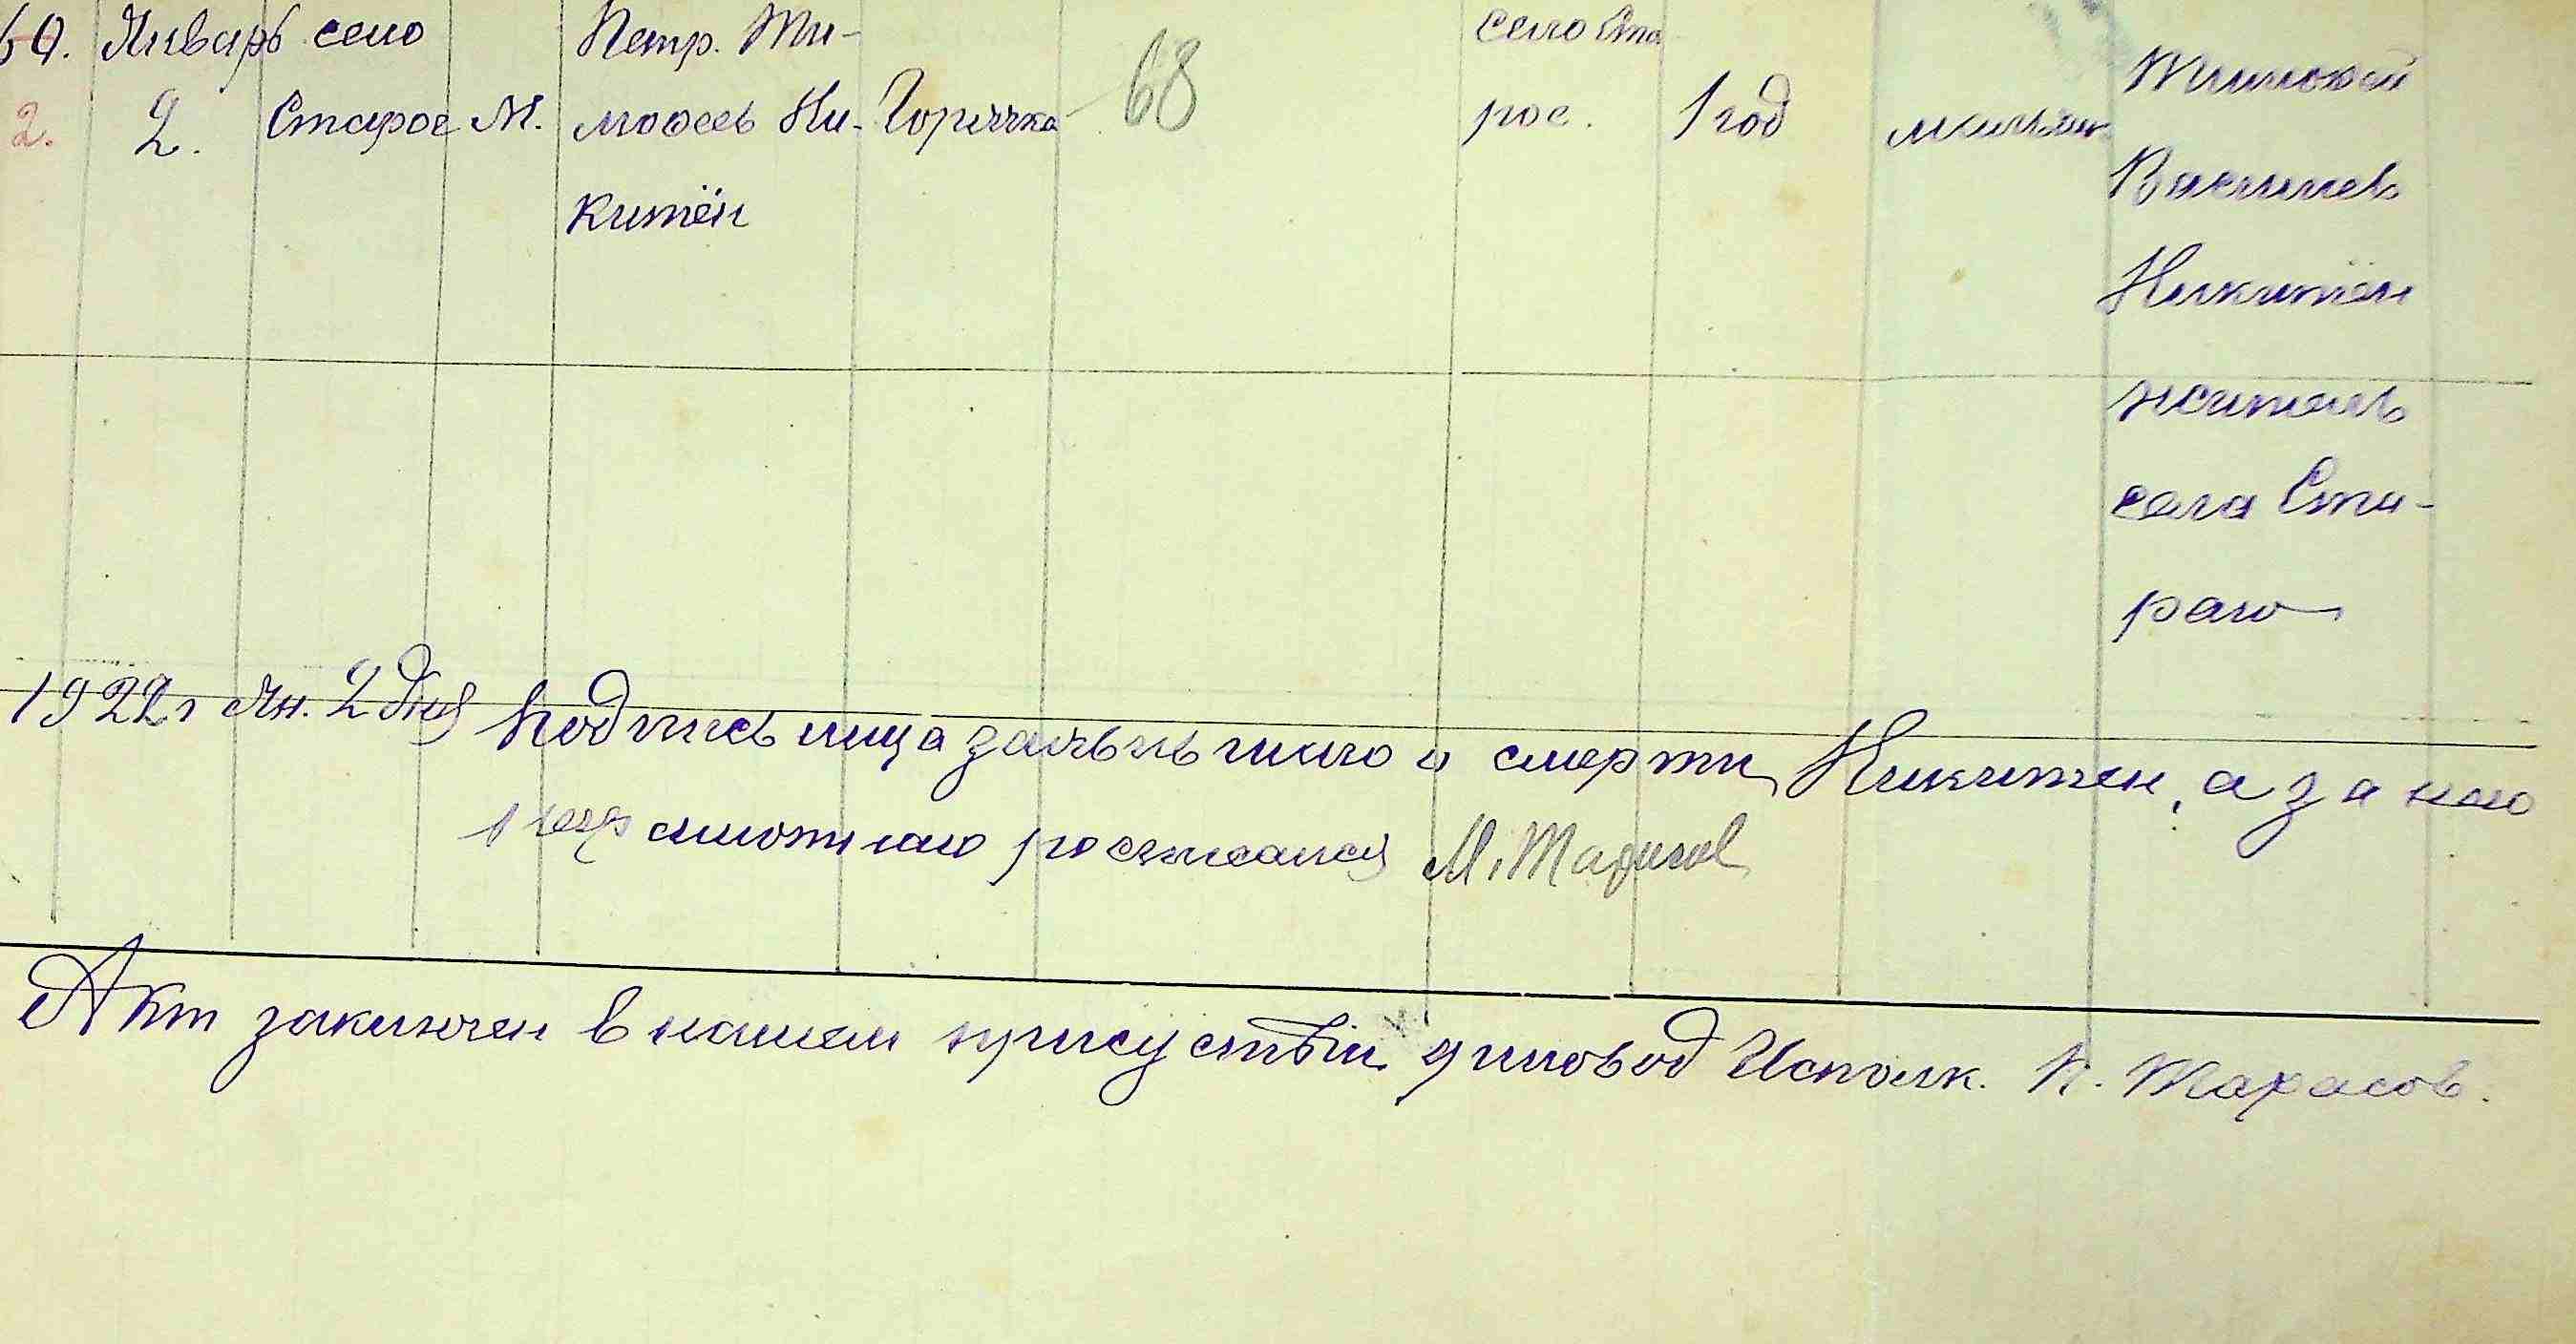 60. Январь село Петр. Ти- село Ста
2. 2. Старое М. мофеев Ни- Горячка 68 рое. 1 год
китён
Тимофей
Васильев
Никитён
житель
села Ста-
раго
1922 г Ян. 2 дня Подпись лица заявившаго о смерти Никитен, а за него
неграмотнаго росписался М.
Акт заключен в нашем присуствии Исполк. П. Тарасов.